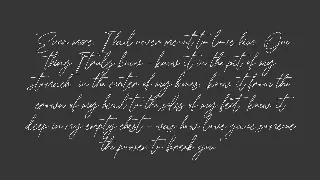 Even more, I had never meant to love him. One
thing I truly knew - knew it in the pit of my
stomach, in the center of my bones, knew it from the
crown of my head to the soles of my feet, knew it
deep in my empty chest - was how love gave someone
the power to break you